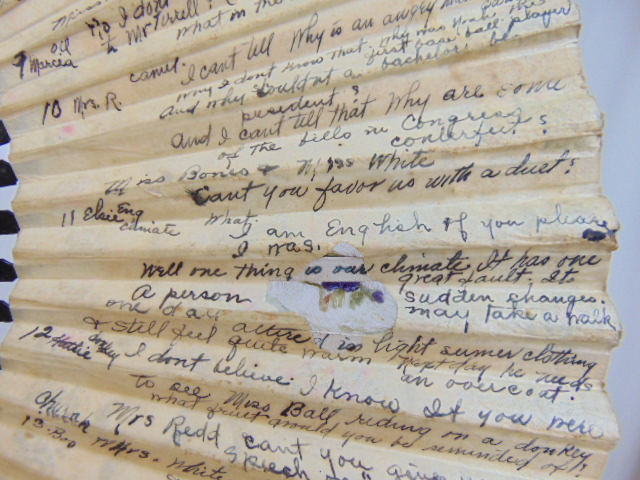 Miss
No I dont
oil
to Mr Terrell?
what in the
9 Marcia
camel.
I cant tell Why is an angry man
Why I dont know that. Why was Noah the
first base ball player
and why couldnt a bachelor be
president?
10 Mrs. R.
And I cant tell that Why are some
of the bills in Congress
counterfeit?
Miss Bones & Miss White
Cant you favor us with a duet?
11 Elsie Eng
climate
What.
I am English if you please
I was.
Well one thing is our climate. It has one
great fault. Its
sudden changes.
A person
may take a walk
one day attired in light sumer clothing
& still feel quite warm
Next day he needs
an overcoat.
12 Hattie
donkey
I dont believe I know If you were
to see Miss Ball riding on a donkey
what fruit would you be reminded of?
Church
Mrs Redd cant you give
13
Mrs. White
speech